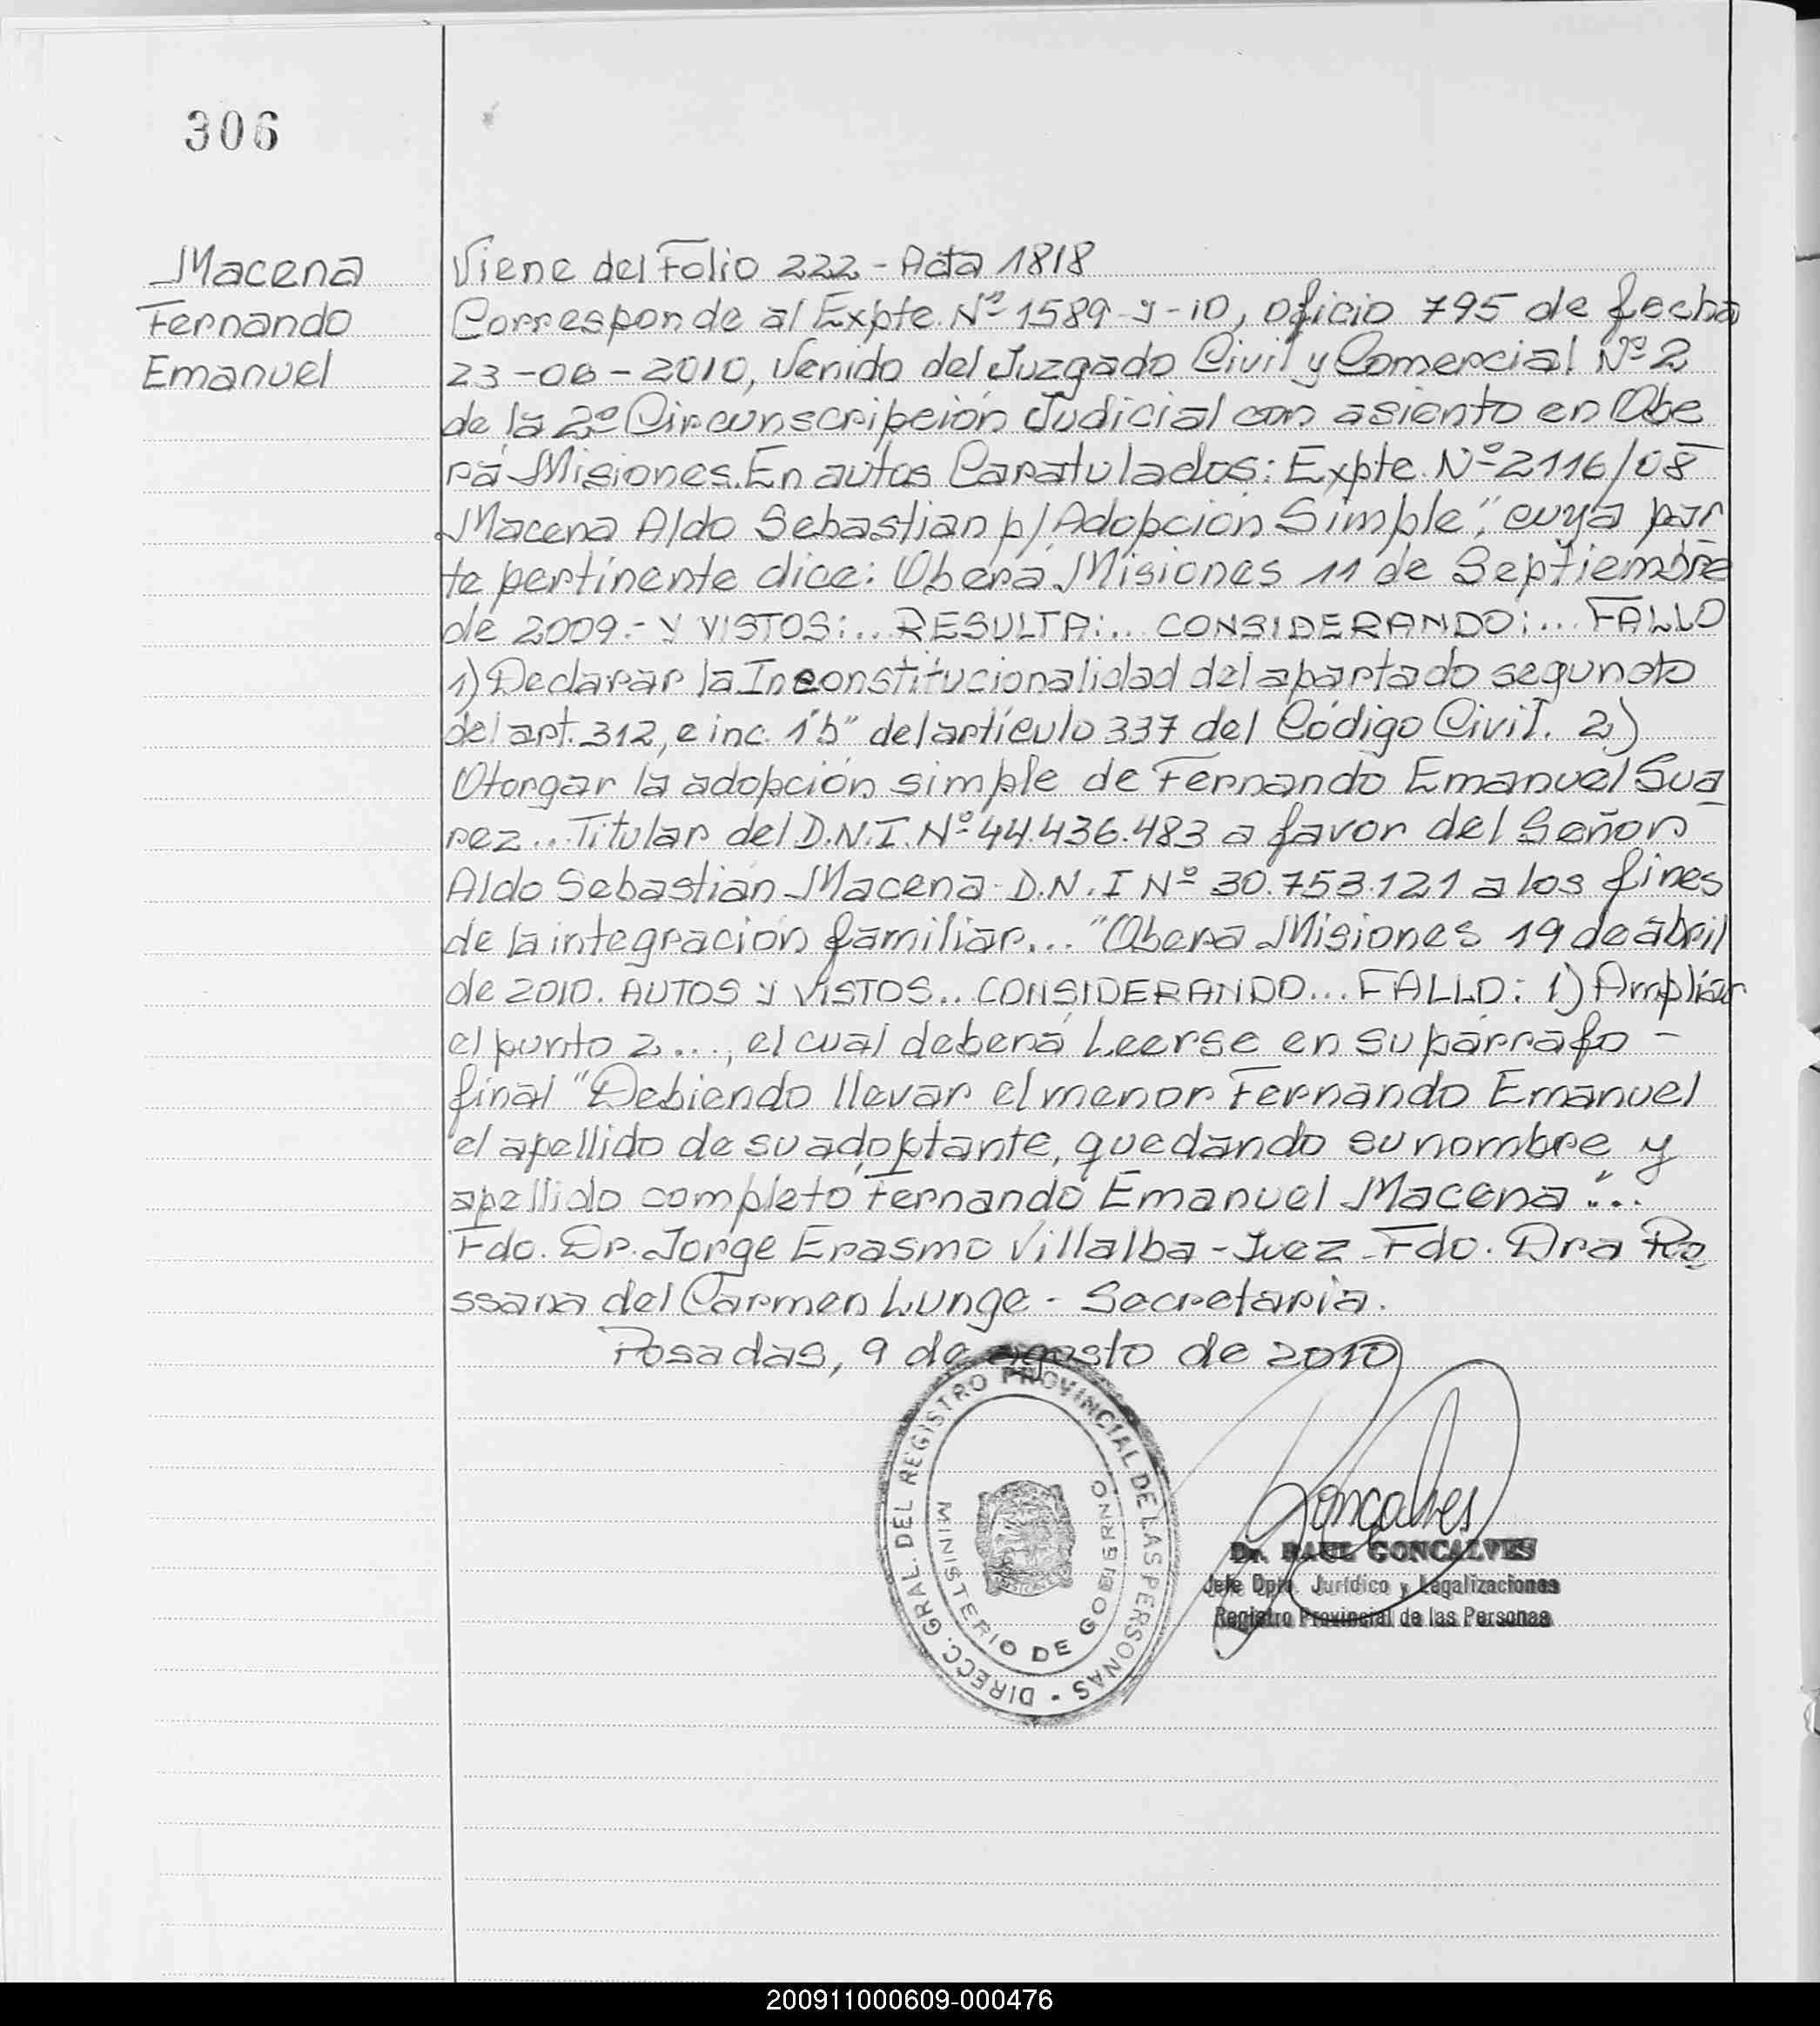 306
Macena
Fernando
Emanuel
Viene del Folio 222 - Acta 1818
Corresponde al Expte. Nº 1589-y-10, oficio 795 de fecha
23-06-2010, Venido del Juzgado Civil y Comercial Nº 2
de la 2º Circunscripción Judicial con asiento en Obe
rá Misiones. En autos Caratulados: Expte. Nº 2116/08
Macena Aldo Sebastian p/Adopción Simple", cuya par
te pertinente dice: Oberá Misiones 11 de Septiembre
de 2009.- y VISTOS:... RESULTA:.. CONSIDERANDO:... FALLO
1) Declarar la Inconstitucionalidad del apartado segundo
del art. 312, e inc. 1"b" del artículo 337 del Código Civil. 2)
Otorgar la adopción simple de Fernando Emanuel Sua
rez... Titular del D.N.I. Nº 44.436.483 a favor del Señor
Aldo Sebastián Macena D.N.I Nº 30.753.121 a los fines
de la integración familiar... "Obera Misiones 19 de abril
de 2010. AUTOS y VISTOS.. CONSIDERANDO... FALLO: 1) Ampliar
el punto 2..., el cual deberá Leerse en su párrafo -
final "Debiendo llevar el menor Fernando Emanuel
el apellido de su adoptante, quedando su nombre y
apellido completo Fernando Emanuel Macena"...
Fdo. Dr. Jorge Erasmo Villalba - Juez - Fdo. Dra Ro
ssana del Carmen Lunge - Secretaria.
Posadas, 9 de agosto de 2010
DIRECC. GRAL. DEL REGISTRO PROVINCIAL DE LAS PERSONAS -
MINISTERIO DE GOBIERNO
Gonçalves
Dr. RAUL GONCALVES
Jefe Dpto. Jurídico y Legalizaciones
Registro Provincial de las Personas
200911000609-000476